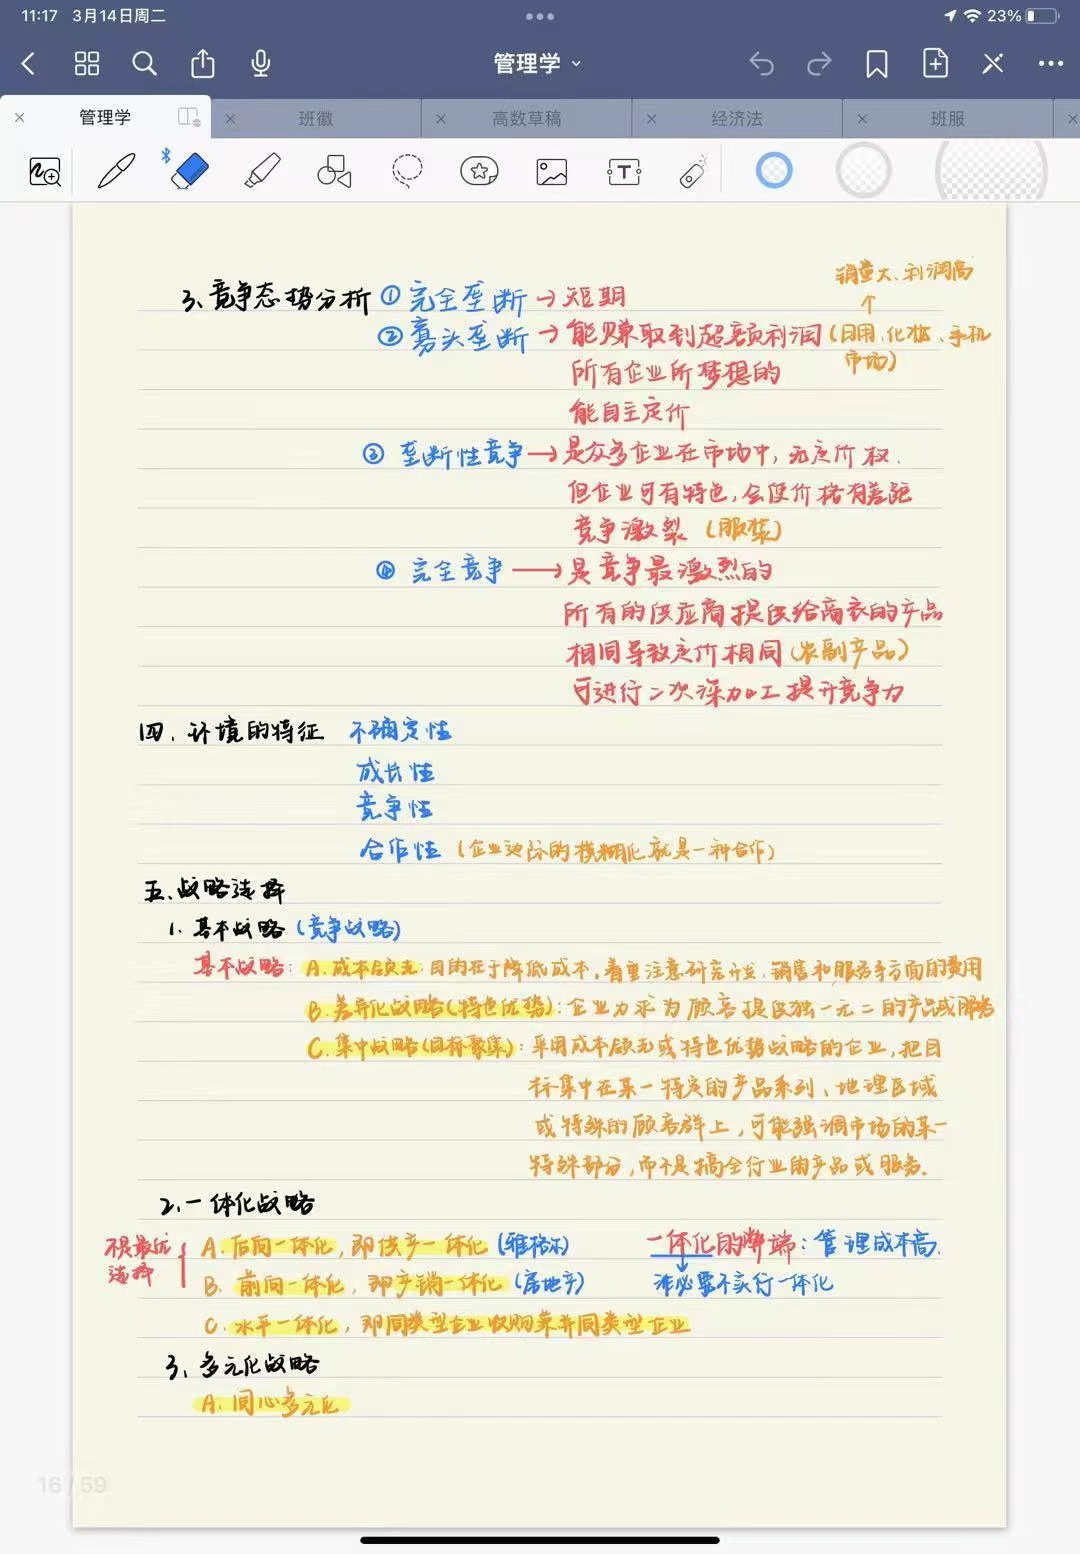 11:17 3月14日周二
23%
管理学
管理学
班徽
高数草稿
经济法
班服
销量大、利润高
↑
3、竞争态势分析 ①完全垄断→短期
②寡头垄断→能赚取到超额利润(日用、化妆、手机
市场)
所有企业所梦想的
能自主定价
③ 垄断性竞争→是众多企业在市场中,无定价权.
但企业可有特色,会使价格有差距
竞争激裂(服装)
④ 完全竞争→是竞争最激烈的
所有的供应商提供给商家的产品
相同导致定价相同(农副产品)
可进行二次深加工提升竞争力
四、环境的特征 不确定性
成长性
竞争性
合作性(企业边际的模糊化就是一种合作)
五、战略选择
1、基本战略(竞争战略)
基本战略:A.成本领先:目的在于降低成本,着重注意研究开发、销售和服务等方面的费用
B.差异化战略(特色优势):企业力求为顾客提供独一无二的产品或服务
C.集中战略(目标聚集):采用成本领先或特色优势战略的企业,把目
标集中在某一特定的产品系列、地理区域
或特殊的顾客群上,可能强调市场的某一
特殊部分,而不是搞全行业的产品或服务.
2、一体化战略
不是最优
选择
A.后向一体化,即供产一体化(雅格尔) 一体化的弊端:管理成本高.
B.前向一体化,即产销一体化(房地产) 非必要不实行一体化
C.水平一体化,即同类型企业收购兼并同类型企业
3、多元化战略
A.同心多元化
16 / 59